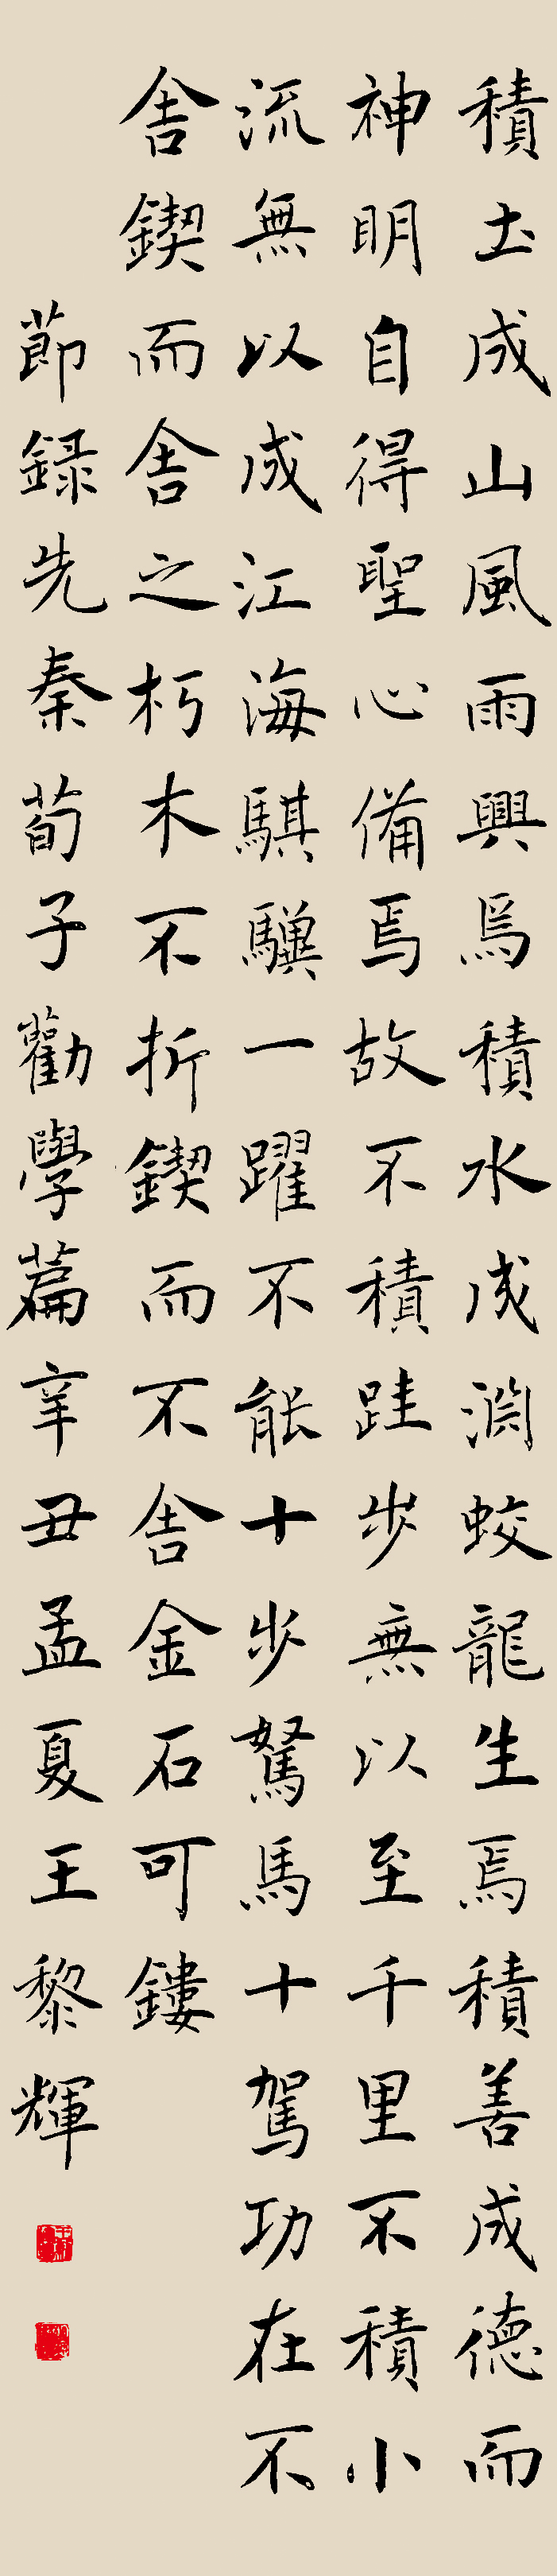 積土成山風雨興焉積水成淵蛟龍生焉積善成德而
神明自得聖心備焉故不積跬步無以至千里不積小
流無以成江海騏驥一躍不能十步駑馬十駕功在不
舍鍥而舍之朽木不折鍥而不舍金石可鏤
節録先秦荀子勸學篇辛丑孟夏王黎輝